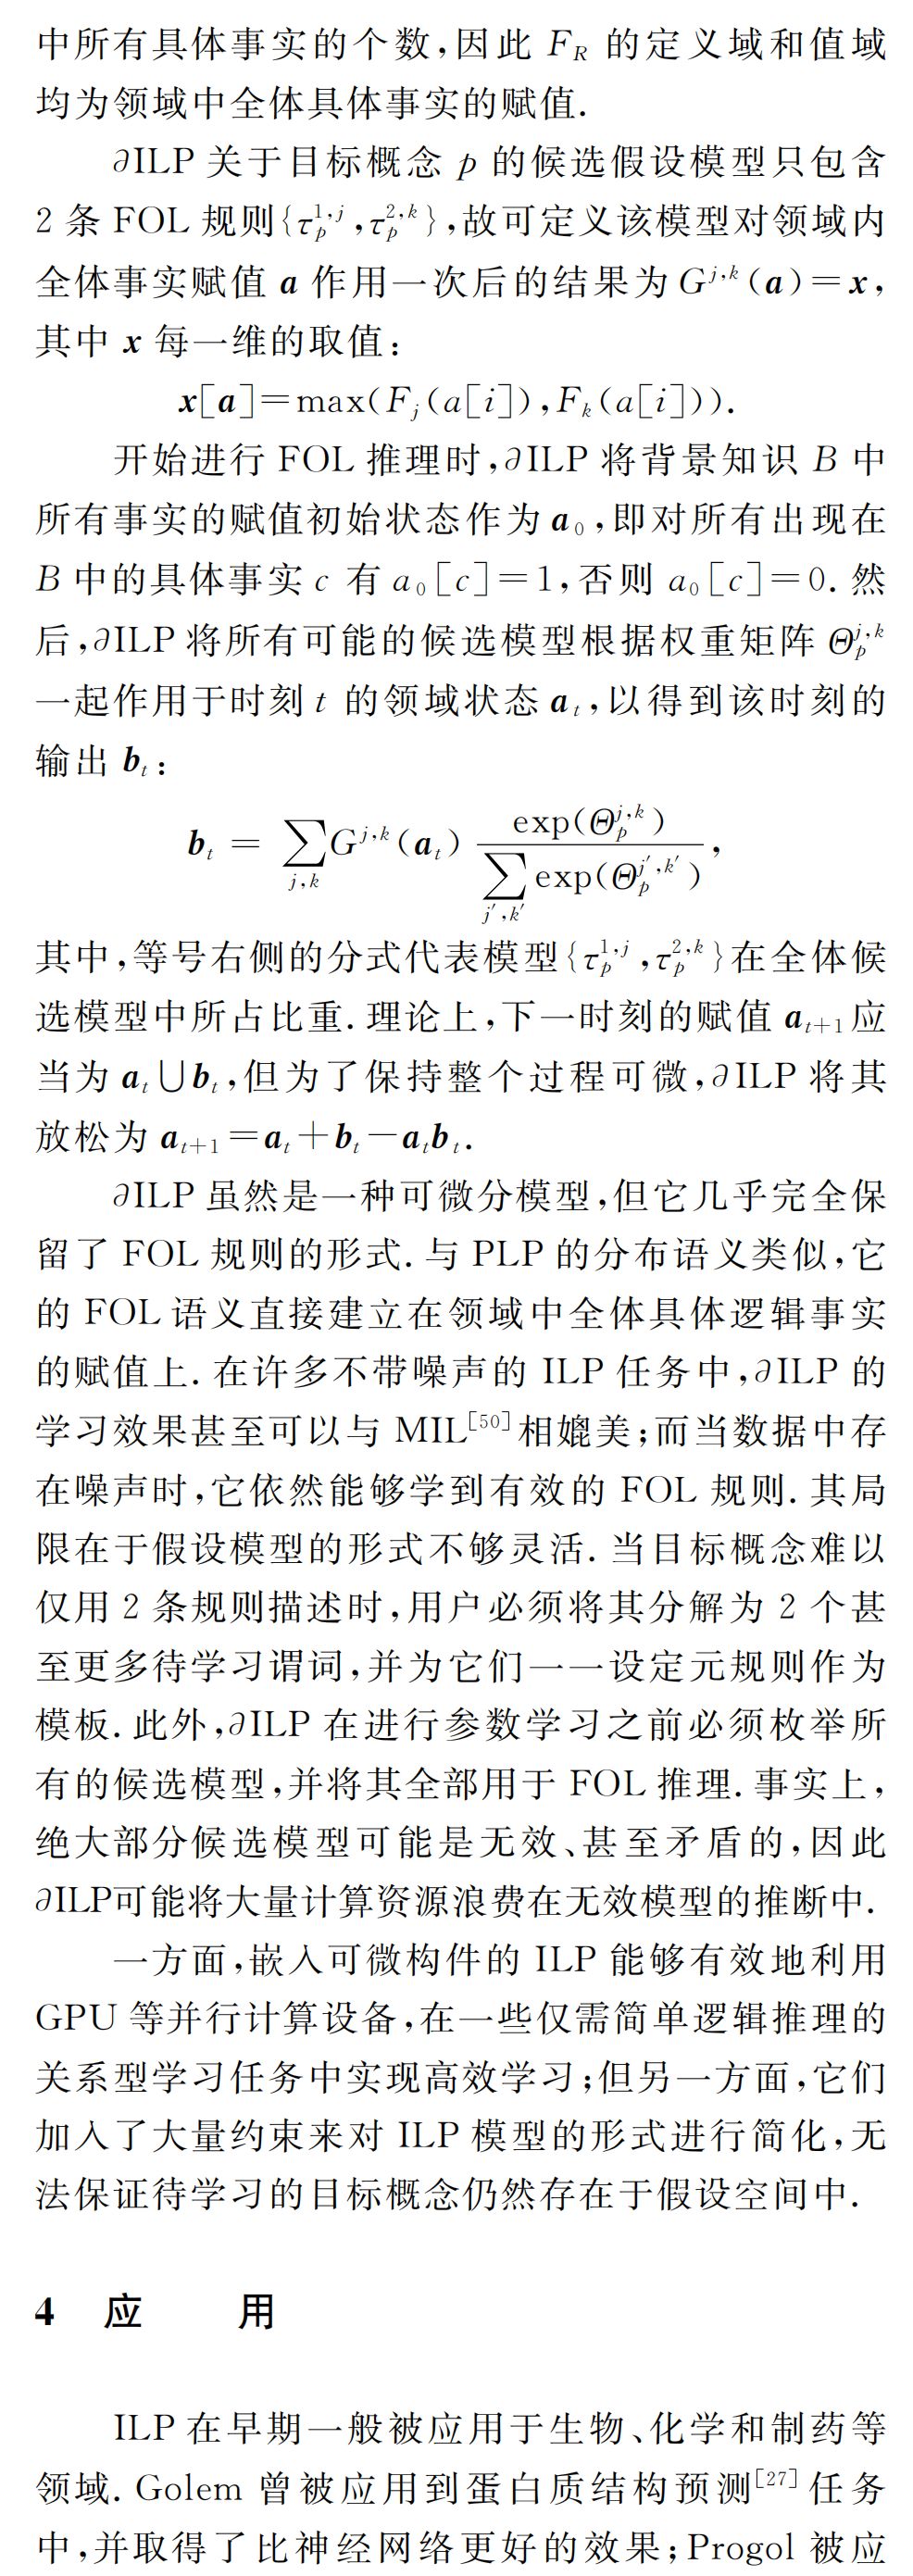 中所有具体事实的个数,因此 F_R 的定义域和值域
均为领域中全体具体事实的赋值.
∂ILP 关于目标概念 p 的候选假设模型只包含
2 条 FOL 规则{τ_p^{1,j},τ_p^{2,k}},故可定义该模型对领域内
全体事实赋值 a 作用一次后的结果为 G^{j,k}(a)=x,
其中 x 每一维的取值:
x[a]=max(F_j(a[i]),F_k(a[i])).
开始进行 FOL 推理时,∂ILP 将背景知识 B 中
所有事实的赋值初始状态作为 a_0,即对所有出现在
B 中的具体事实 c 有 a_0[c]=1,否则 a_0[c]=0. 然
后,∂ILP 将所有可能的候选模型根据权重矩阵 Θ_p^{j,k}
一起作用于时刻 t 的领域状态 a_t,以得到该时刻的
输出 b_t:
b_t = ∑_{j,k} G^{j,k}(a_t) exp(Θ_p^{j,k}) / ∑_{j′,k′} exp(Θ_p^{j′,k′}),
其中,等号右侧的分式代表模型{τ_p^{1,j},τ_p^{2,k}}在全体候
选模型中所占比重. 理论上,下一时刻的赋值 a_{t+1} 应
当为 a_t∪b_t,但为了保持整个过程可微,∂ILP 将其
放松为 a_{t+1}=a_t+b_t−a_tb_t.
∂ILP 虽然是一种可微分模型,但它几乎完全保
留了 FOL 规则的形式. 与 PLP 的分布语义类似,它
的 FOL 语义直接建立在领域中全体具体逻辑事实
的赋值上. 在许多不带噪声的 ILP 任务中,∂ILP 的
学习效果甚至可以与 MIL[50]相媲美;而当数据中存
在噪声时,它依然能够学到有效的 FOL 规则. 其局
限在于假设模型的形式不够灵活. 当目标概念难以
仅用 2 条规则描述时,用户必须将其分解为 2 个甚
至更多待学习谓词,并为它们一一设定元规则作为
模板. 此外,∂ILP 在进行参数学习之前必须枚举所
有的候选模型,并将其全部用于 FOL 推理. 事实上,
绝大部分候选模型可能是无效、甚至矛盾的,因此
∂ILP可能将大量计算资源浪费在无效模型的推断中.
一方面,嵌入可微构件的 ILP 能够有效地利用
GPU 等并行计算设备,在一些仅需简单逻辑推理的
关系型学习任务中实现高效学习;但另一方面,它们
加入了大量约束来对 ILP 模型的形式进行简化,无
法保证待学习的目标概念仍然存在于假设空间中.
4 应 用
ILP 在早期一般被应用于生物、化学和制药等
领域. Golem 曾被应用到蛋白质结构预测[27]任务
中,并取得了比神经网络更好的效果;Progol 被应